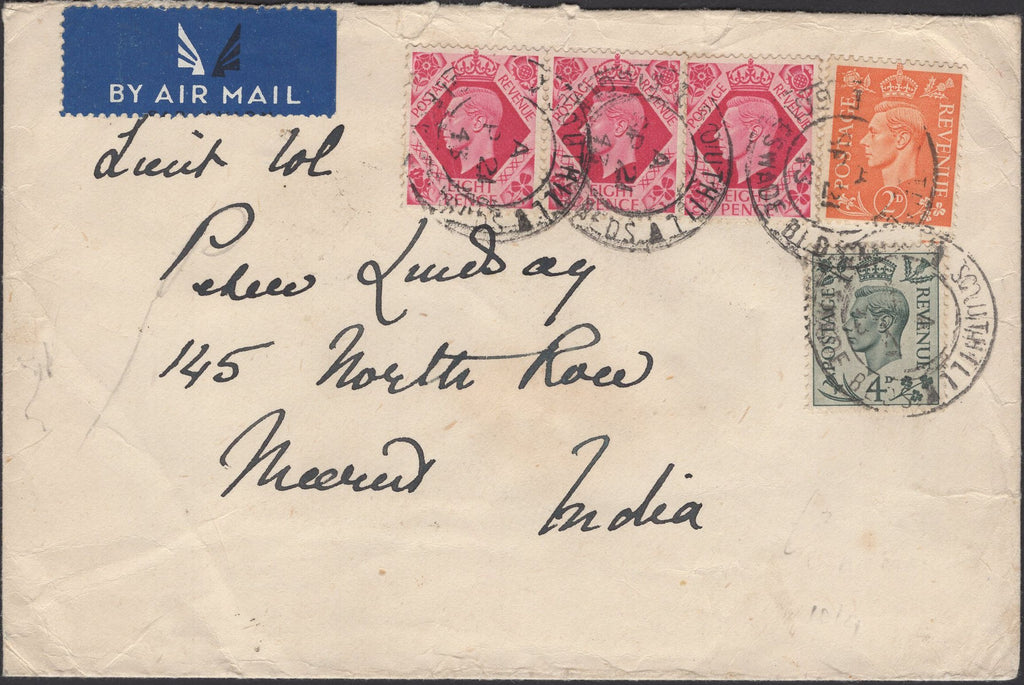 BY AIR MAIL
POSTAGE REVENUE
EIGHT PENCE
POSTAGE REVENUE
EIGHT PENCE
POSTAGE REVENUE
EIGHT PENCE
POSTAGE REVENUE
2D
POSTAGE REVENUE
4D
SOUTHILL
BEDS
Lieut Col
Lindsay
145 North Row
Meerut
India